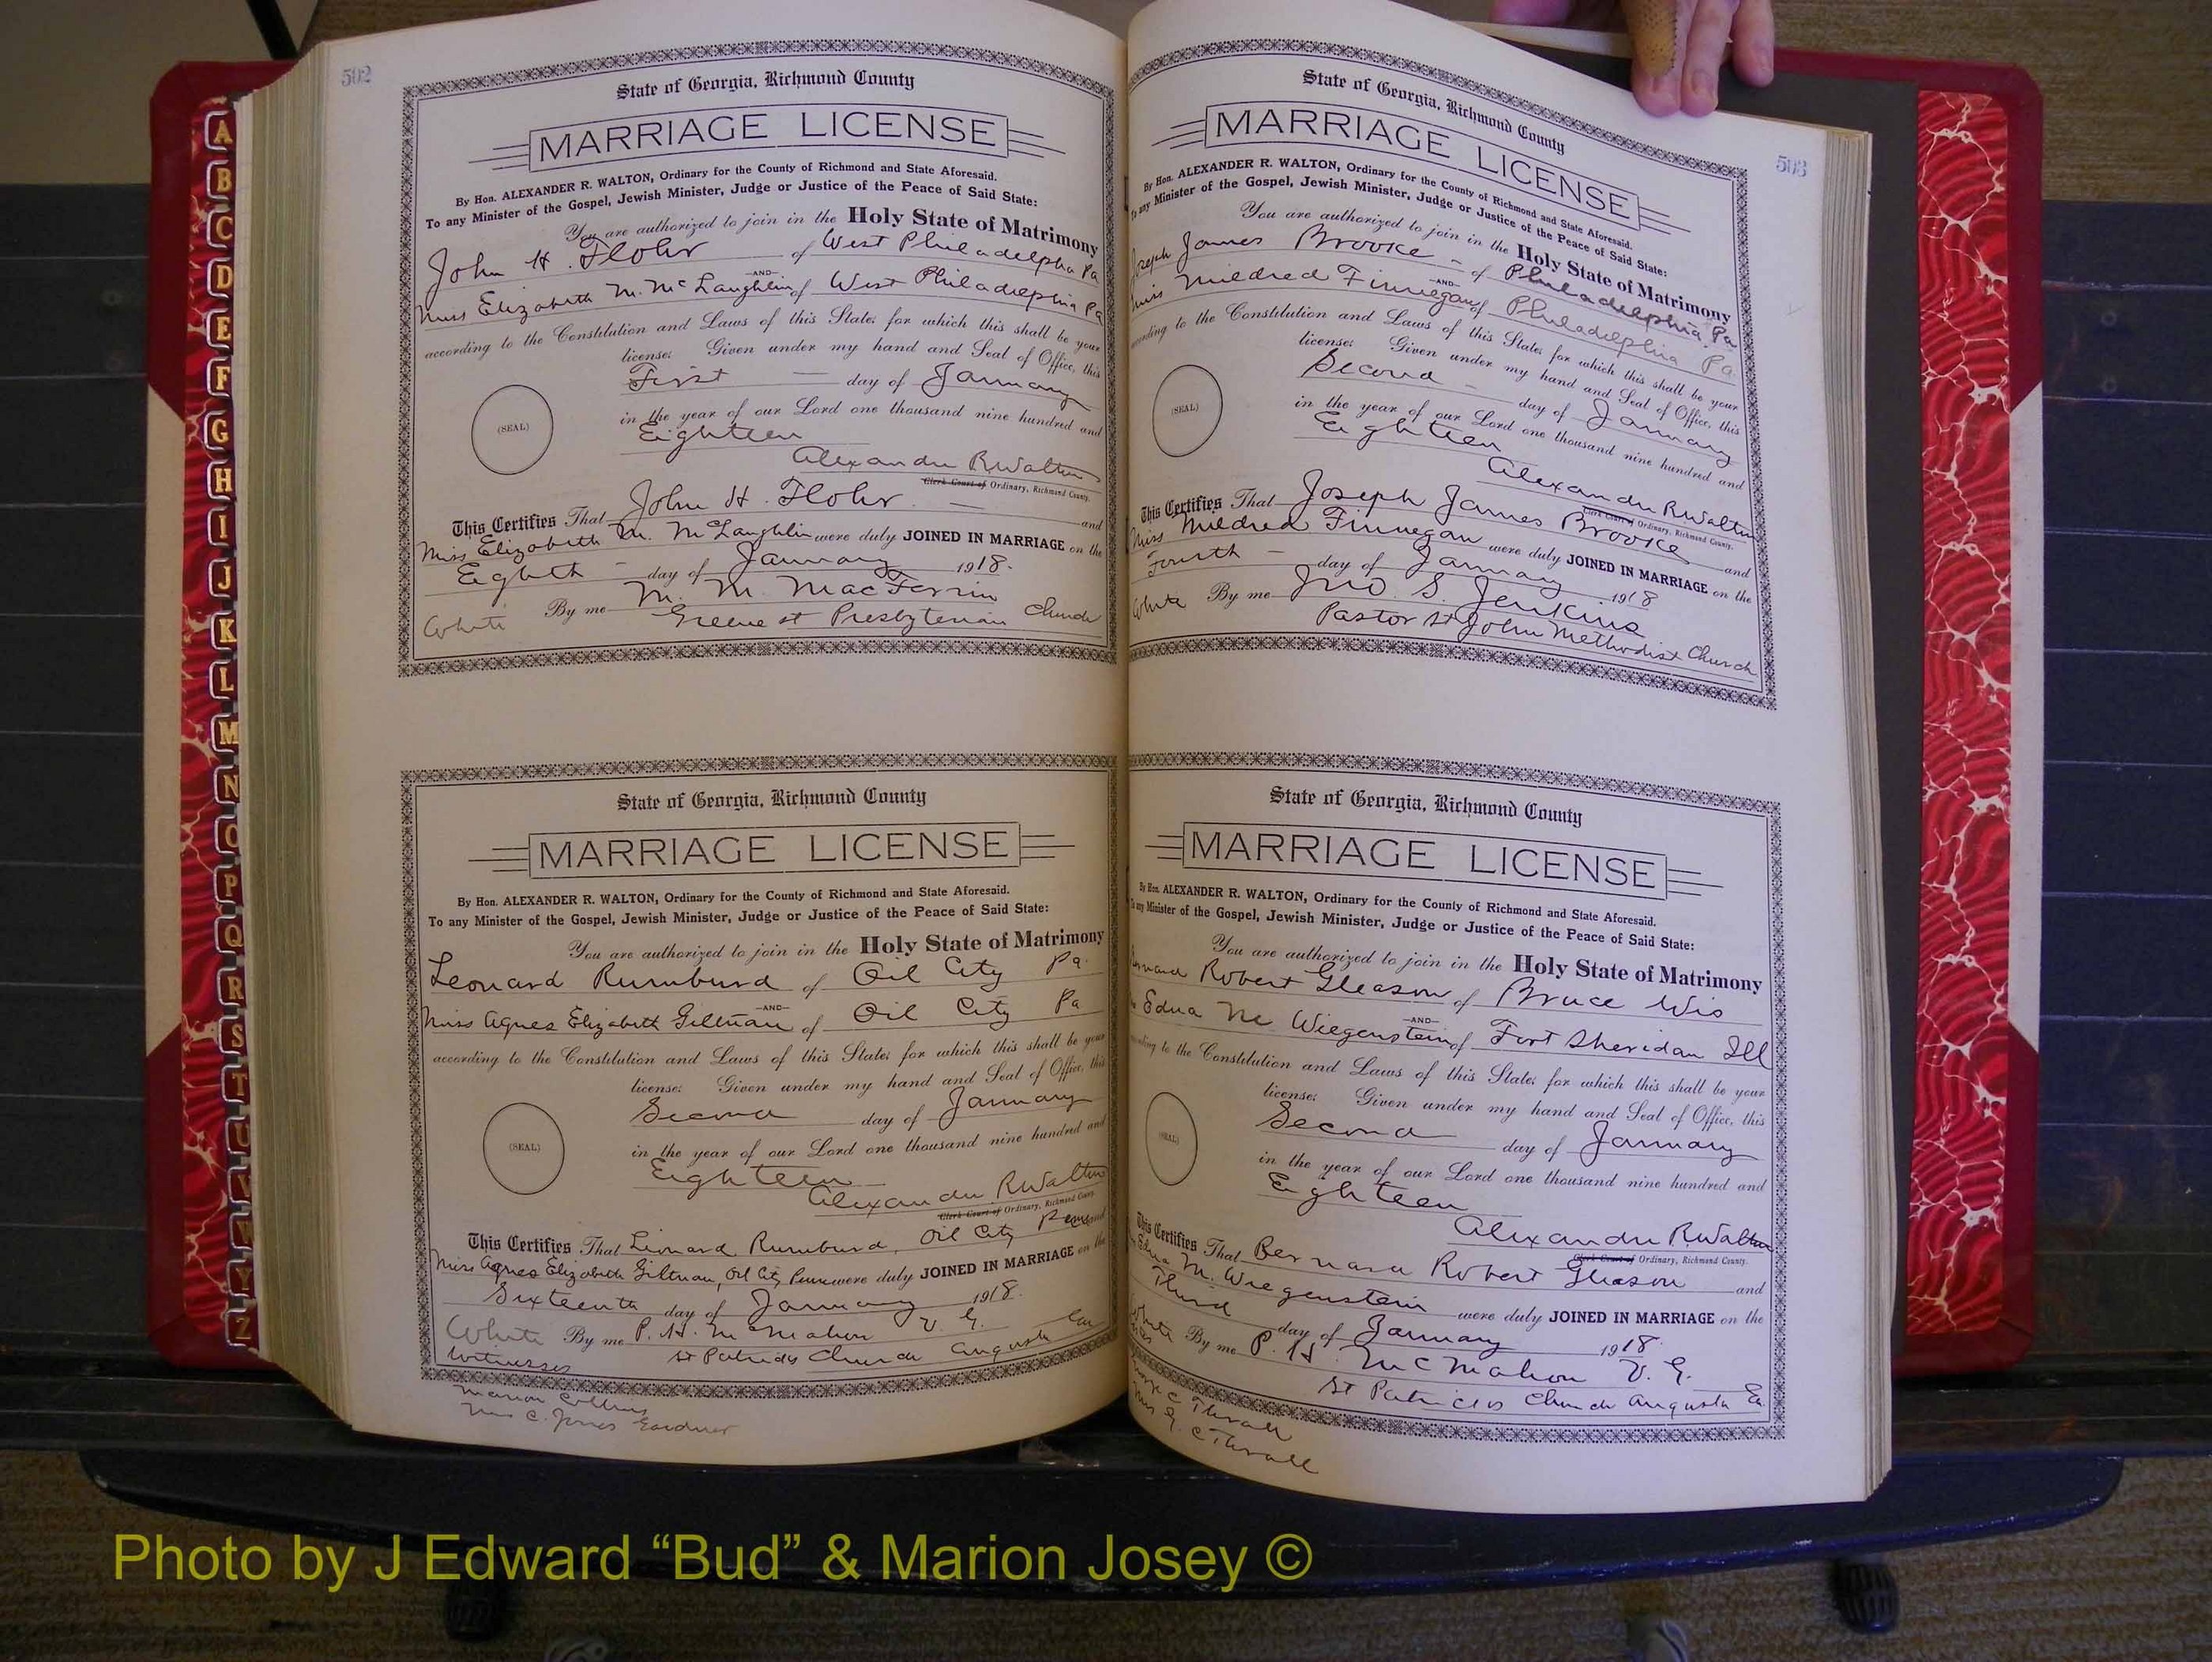 502
State of Georgia, Richmond County
MARRIAGE LICENSE
By Hon. ALEXANDER R. WALTON, Ordinary for the County of Richmond and State Aforesaid.
To any Minister of the Gospel, Jewish Minister, Judge or Justice of the Peace of Said State:
You are authorized to join in the Holy State of Matrimony
John H. Flohr of West Philadelphia Pa
AND
Miss Elizabeth M. McLaughlin of West Philadelphia Pa
according to the Constitution and Laws of this State; for which this shall be your
license: Given under my hand and Seal of Office, this
First day of January
in the year of our Lord one thousand nine hundred and
(SEAL)
Eighteen
Alexander R Walton
Clerk Court of Ordinary, Richmond County.
This Certifies That John H. Flohr and
Miss Elizabeth M. McLaughlin were duly JOINED IN MARRIAGE on the
Eighth day of January 1918.
By me M. M. MacFerrin
White Greene st Presbyterian Church
State of Georgia, Richmond County
MARRIAGE LICENSE
By Hon. ALEXANDER R. WALTON, Ordinary for the County of Richmond and State Aforesaid.
To any Minister of the Gospel, Jewish Minister, Judge or Justice of the Peace of Said State:
You are authorized to join in the Holy State of Matrimony
Leonard Rumburd of Oil City Pa
AND
Miss Agnes Elizabeth Giltnan of Oil City Pa
according to the Constitution and Laws of this State; for which this shall be your
license: Given under my hand and Seal of Office, this
Second day of January
in the year of our Lord one thousand nine hundred and
(SEAL)
Eighteen
Alexander R Walton
Clerk Court of Ordinary, Richmond County.
This Certifies That Leonard Rumburd, Oil City and
Miss Agnes Elizabeth Giltnan, Oil City were duly JOINED IN MARRIAGE on the
Sixteenth day of January 1918.
White By me P. H. McMahon V. G.
Witnesses St Patricks Church Augusta Ga
Marion Collins
C. Jones Gardner
503
State of Georgia, Richmond County
MARRIAGE LICENSE
By Hon. ALEXANDER R. WALTON, Ordinary for the County of Richmond and State Aforesaid.
To any Minister of the Gospel, Jewish Minister, Judge or Justice of the Peace of Said State:
You are authorized to join in the Holy State of Matrimony
Joseph James Brooke of Philadelphia Pa
AND
Miss Mildred Finnegan of Philadelphia Pa
according to the Constitution and Laws of this State; for which this shall be your
license: Given under my hand and Seal of Office, this
Second day of January
in the year of our Lord one thousand nine hundred and
(SEAL)
Eighteen
Alexander R Walton
Clerk Court of Ordinary, Richmond County.
This Certifies That Joseph James Brooke and
Miss Mildred Finnegan were duly JOINED IN MARRIAGE on the
Fourth day of January 1918
White By me Jno. S. Jenkins
Pastor St John Methodist Church
State of Georgia, Richmond County
MARRIAGE LICENSE
By Hon. ALEXANDER R. WALTON, Ordinary for the County of Richmond and State Aforesaid.
To any Minister of the Gospel, Jewish Minister, Judge or Justice of the Peace of Said State:
You are authorized to join in the Holy State of Matrimony
Robert Gleason of Bruce Wis
AND
Edna Mc Wiegenstein of Fort Sheridan Ill
to the Constitution and Laws of this State; for which this shall be your
license: Given under my hand and Seal of Office, this
Second day of January
in the year of our Lord one thousand nine hundred and
(SEAL)
Eighteen
Alexander R Walton
Clerk Court of Ordinary, Richmond County.
This Certifies That Bernard Robert Gleason and
Edna M. Wiegenstein were duly JOINED IN MARRIAGE on the
Third day of January 1918.
White By me P. H. McMahon V. G.
St Patricks Church Augusta Ga
C Thrall
G. C Thrall
A
B
C
D
E
F
G
H
I
J
K
L
M
N
O
P
Q
R
S
T
U
V
W
Y
Z
Photo by J Edward “Bud” & Marion Josey ©